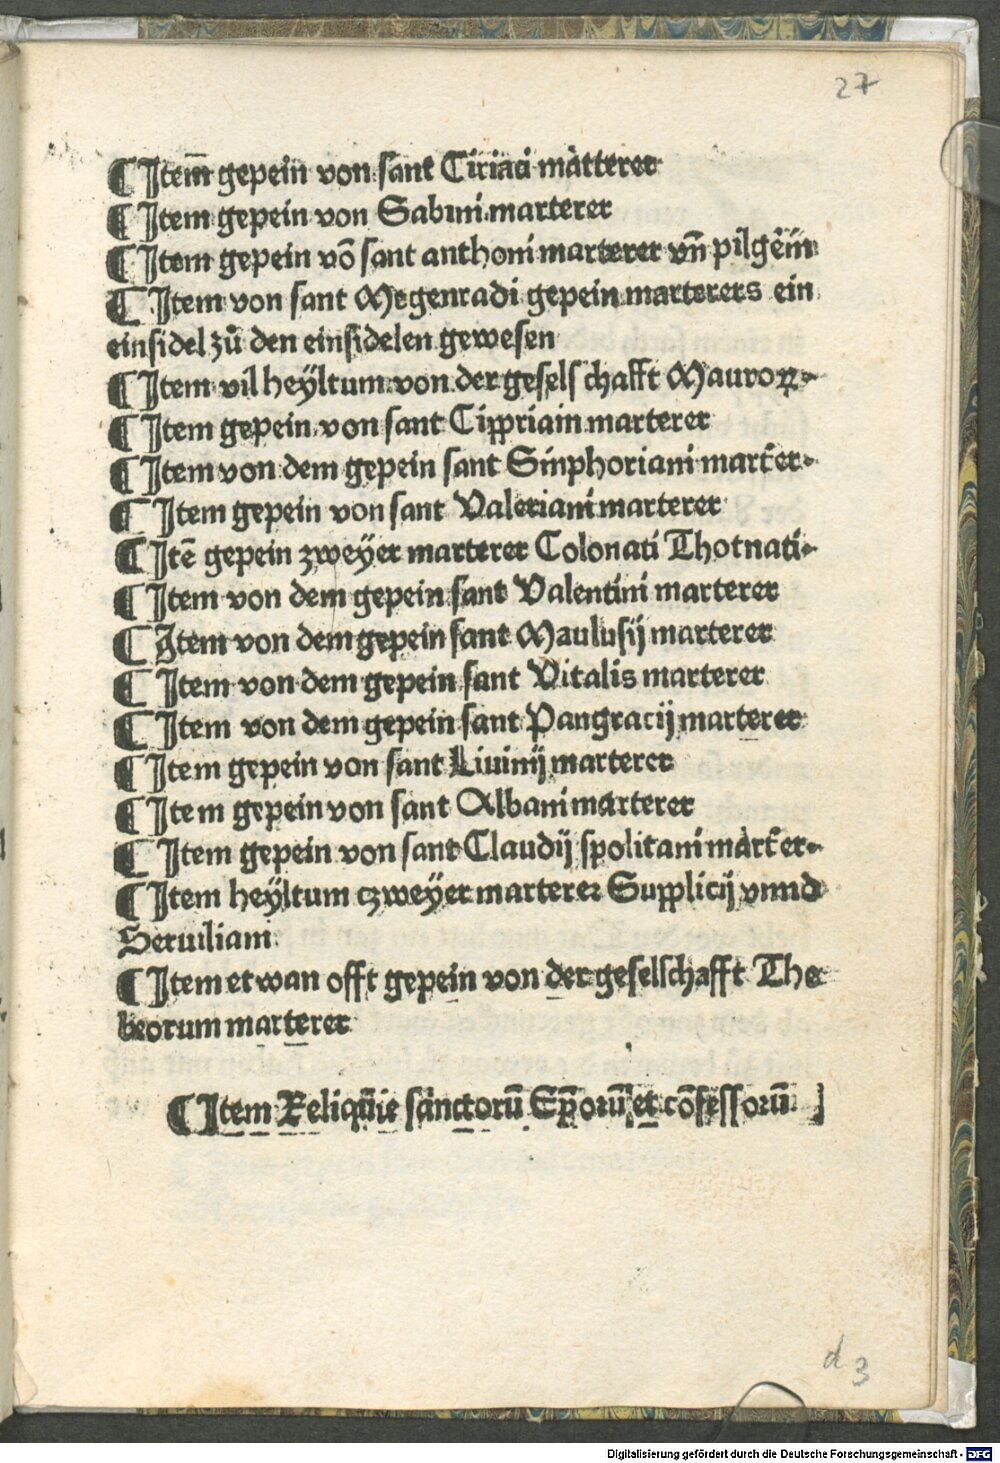 27
¶ Item̄ gepein von sant Ciriaci mȧtterer
¶ Item gepein von Sabini marterer
¶ Item gepein vō sant anthoni marterer vn̄ pilgēin
¶ Item von sant Megenradi gepein marterers ein
einsidel zů den einsidelen gewesen
¶ Item vil heÿltum von der gesels chafft Mauroꝝ
¶ Item gepein von sant Cippriain marterer
¶ Item von dem gepein sant Sinphoriani mart̄er
¶ Item gepein von sant Valeriani marterer
¶ Itē gepein zweÿer marterer Colonati Thotnati
¶ Item von dem gepein sant Valentini marterer
¶ Item von dem gepein sant Maulusij marterer
¶ Item von dem gepein sant Vitalis marterer
¶ Item von dem gepein sant Pangracij marterer
¶ Item gepein von sant Liuinij marterer
¶ Item gepein von sant Albani marterer
¶ Item gepein von sant Claudij spolitani mȧrt̄er
¶ Item heÿltum czweÿer marterer Supplicij vnnd
Seruiliani
¶ Item etwan offt gepein von der geselschafft The
beorum marterer
¶ Item Reliqūie sanctorū Ep̄orū et cōfessorū
d 3
Digitalisierung gefördert durch die Deutsche Forschungsgemeinschaft - DFG